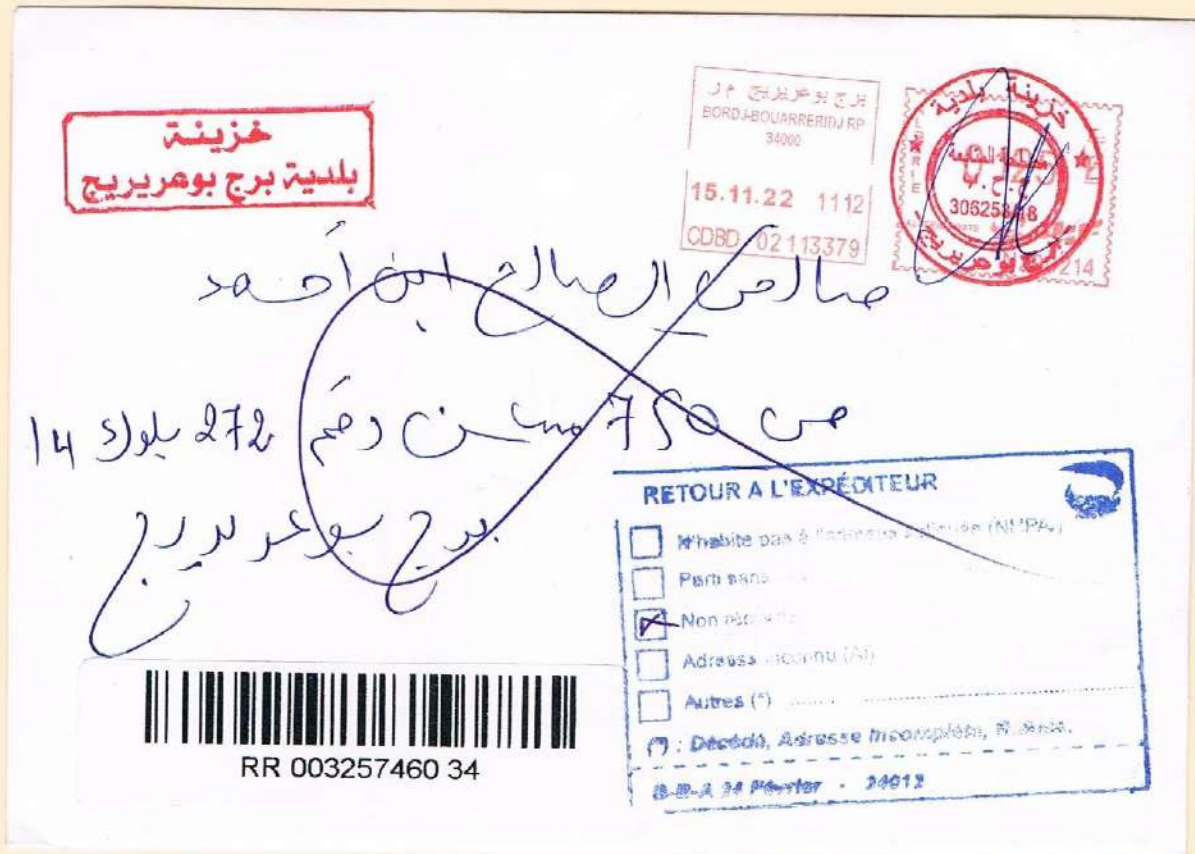 خزينة
بلدية برج بوعريريج
برج بوعريريج م ر
BORDJ-BOUARRERIDJ RP
34000
15.11.22 1112
CDBD 02113379
خزينة بلدية
306253/18
برج بوعريريج
214
صالحي الصالح ابن أحمد
ص 750 مسكن رقم 272 بلوك 14
برج بوعريريج
RETOUR A L'EXPÉDITEUR
N'habite pas à l'adresse indiquée (NHPA)
Parti sans
Non réclamé
Adresse inconnu (AI)
Autres (*)
(*) : Décédé, Adresse incomplète,
B-B-A 24 Février - 34012
RR 003257460 34